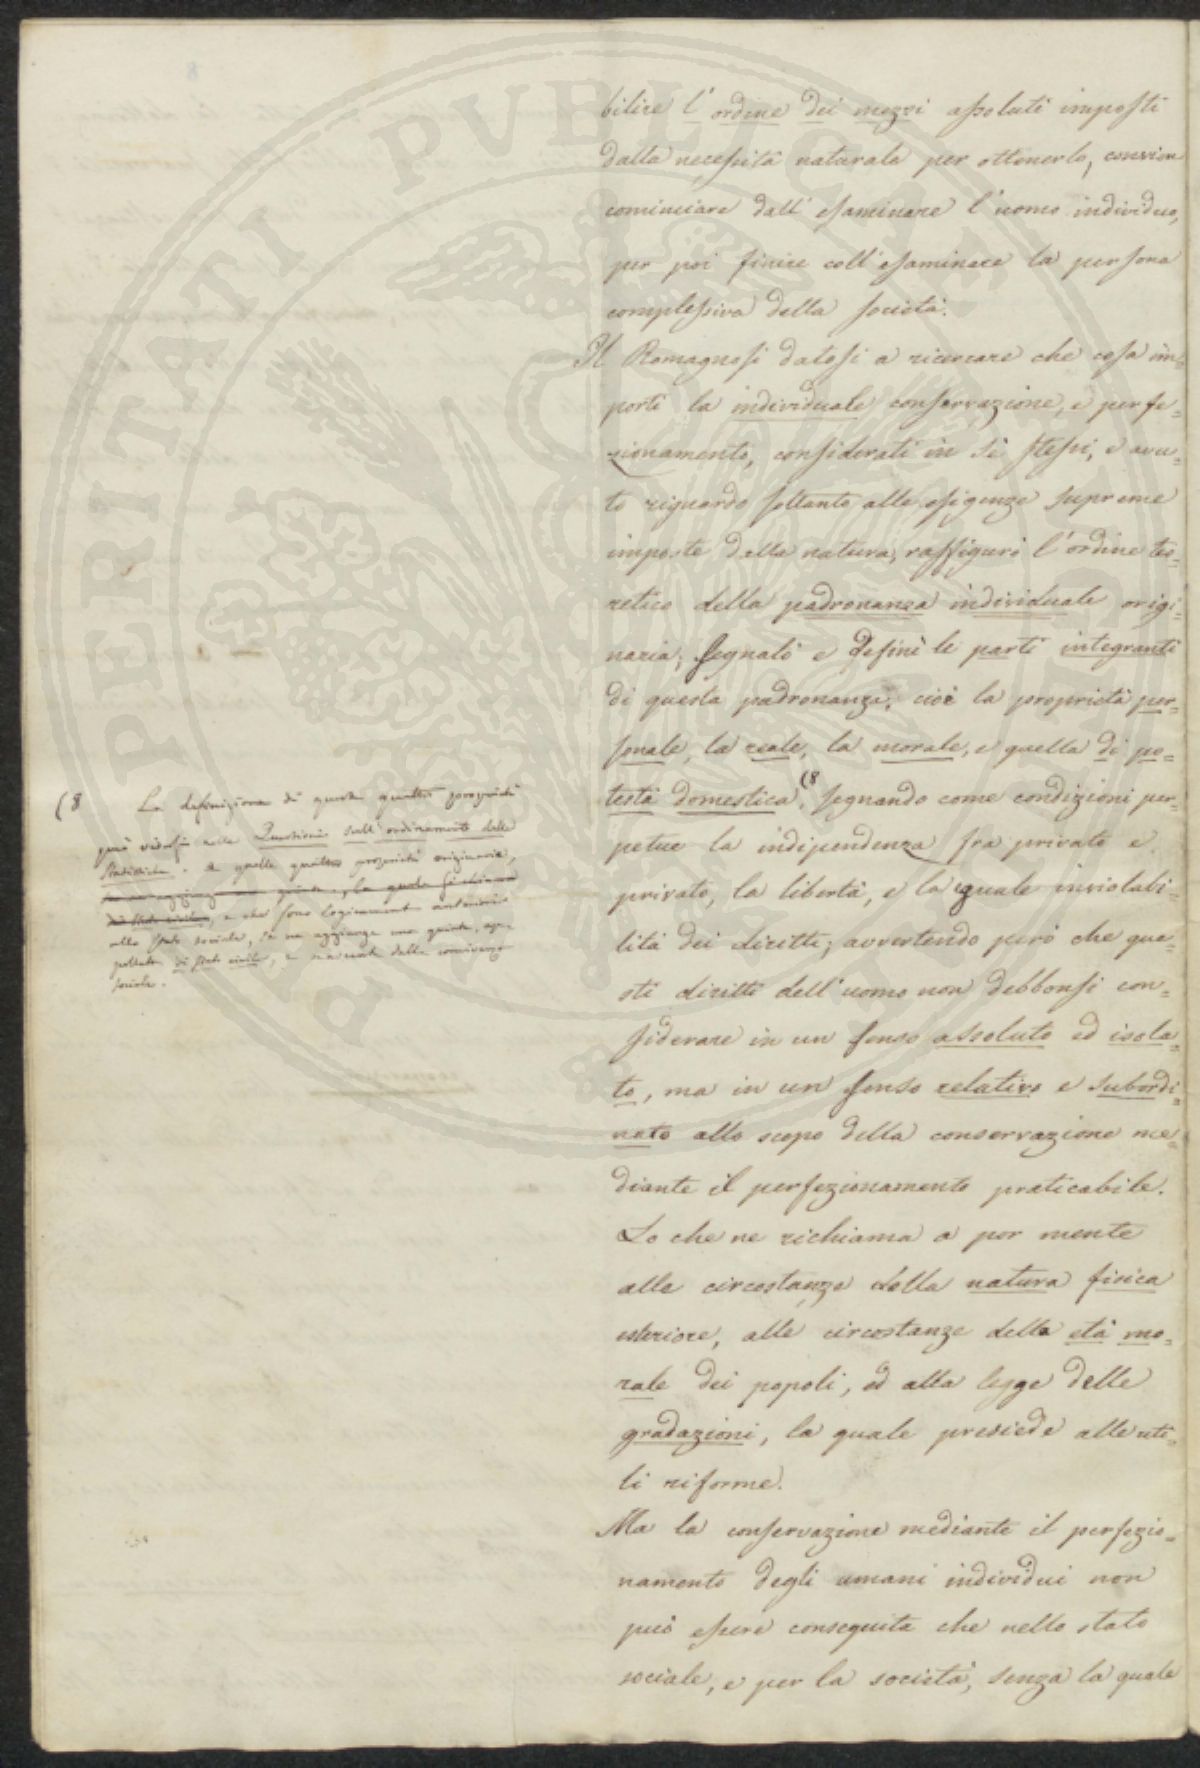 bilire l'ordine dei mezzi assoluti imposti
dalla necessità naturale per ottenerlo, convien
cominciare dall'esaminare l'uomo individuo,
per poi finire coll'esaminare la persona
complessiva della società.
Il Romagnosi datosi a ricercare che cosa im=
porti la individuale conservazione, e perfe=
zionamento, considerati in sè stessi, e avu=
to riguardo soltanto alle esigenze supreme
imposte dalla natura, raffigurò l'ordine teo=
retico della padronanza individuale origi=
naria; segnalò e definì le parti integranti
di questa padronanza, cioè la proprietà per=
sonale, la reale, la morale, e quella di po=
testà domestica,(8 segnando come condizioni per=
petue la indipendenza fra privato e
privato, la libertà, e la eguale inviolabi=
lità dei diritti; avvertendo però che que=
sti diritti dell'uomo non debbonsi con=
siderare in un senso assoluto ed isola=
to, ma in un senso relativo e subordi=
nato allo scopo della conservazione me=
diante il perfezionamento praticabile.
Lo che ne richiama a por mente
alle circostanze della natura fisica
esteriore, alle circostanze della età mo=
rale dei popoli, ed alla legge delle
gradazioni, la quale presiede alle uti=
li riforme.
Ma la conservazione mediante il perfezio=
namento degli umani individui non
può essere conseguita che nello stato
sociale, e per la società, senza la quale
(8 La definizione di queste quattro proprietà
può vedersi nelle Quistioni sull'ordinamento delle
Statistiche. A quelle quattro proprietà originarie,
e che sono logicamente anteriori
allo stato sociale, se ne aggiunge una quinta, ap=
pellata di stato civile, e nascente dalla convivenza
sociale.
PERITATI PVBLICAE